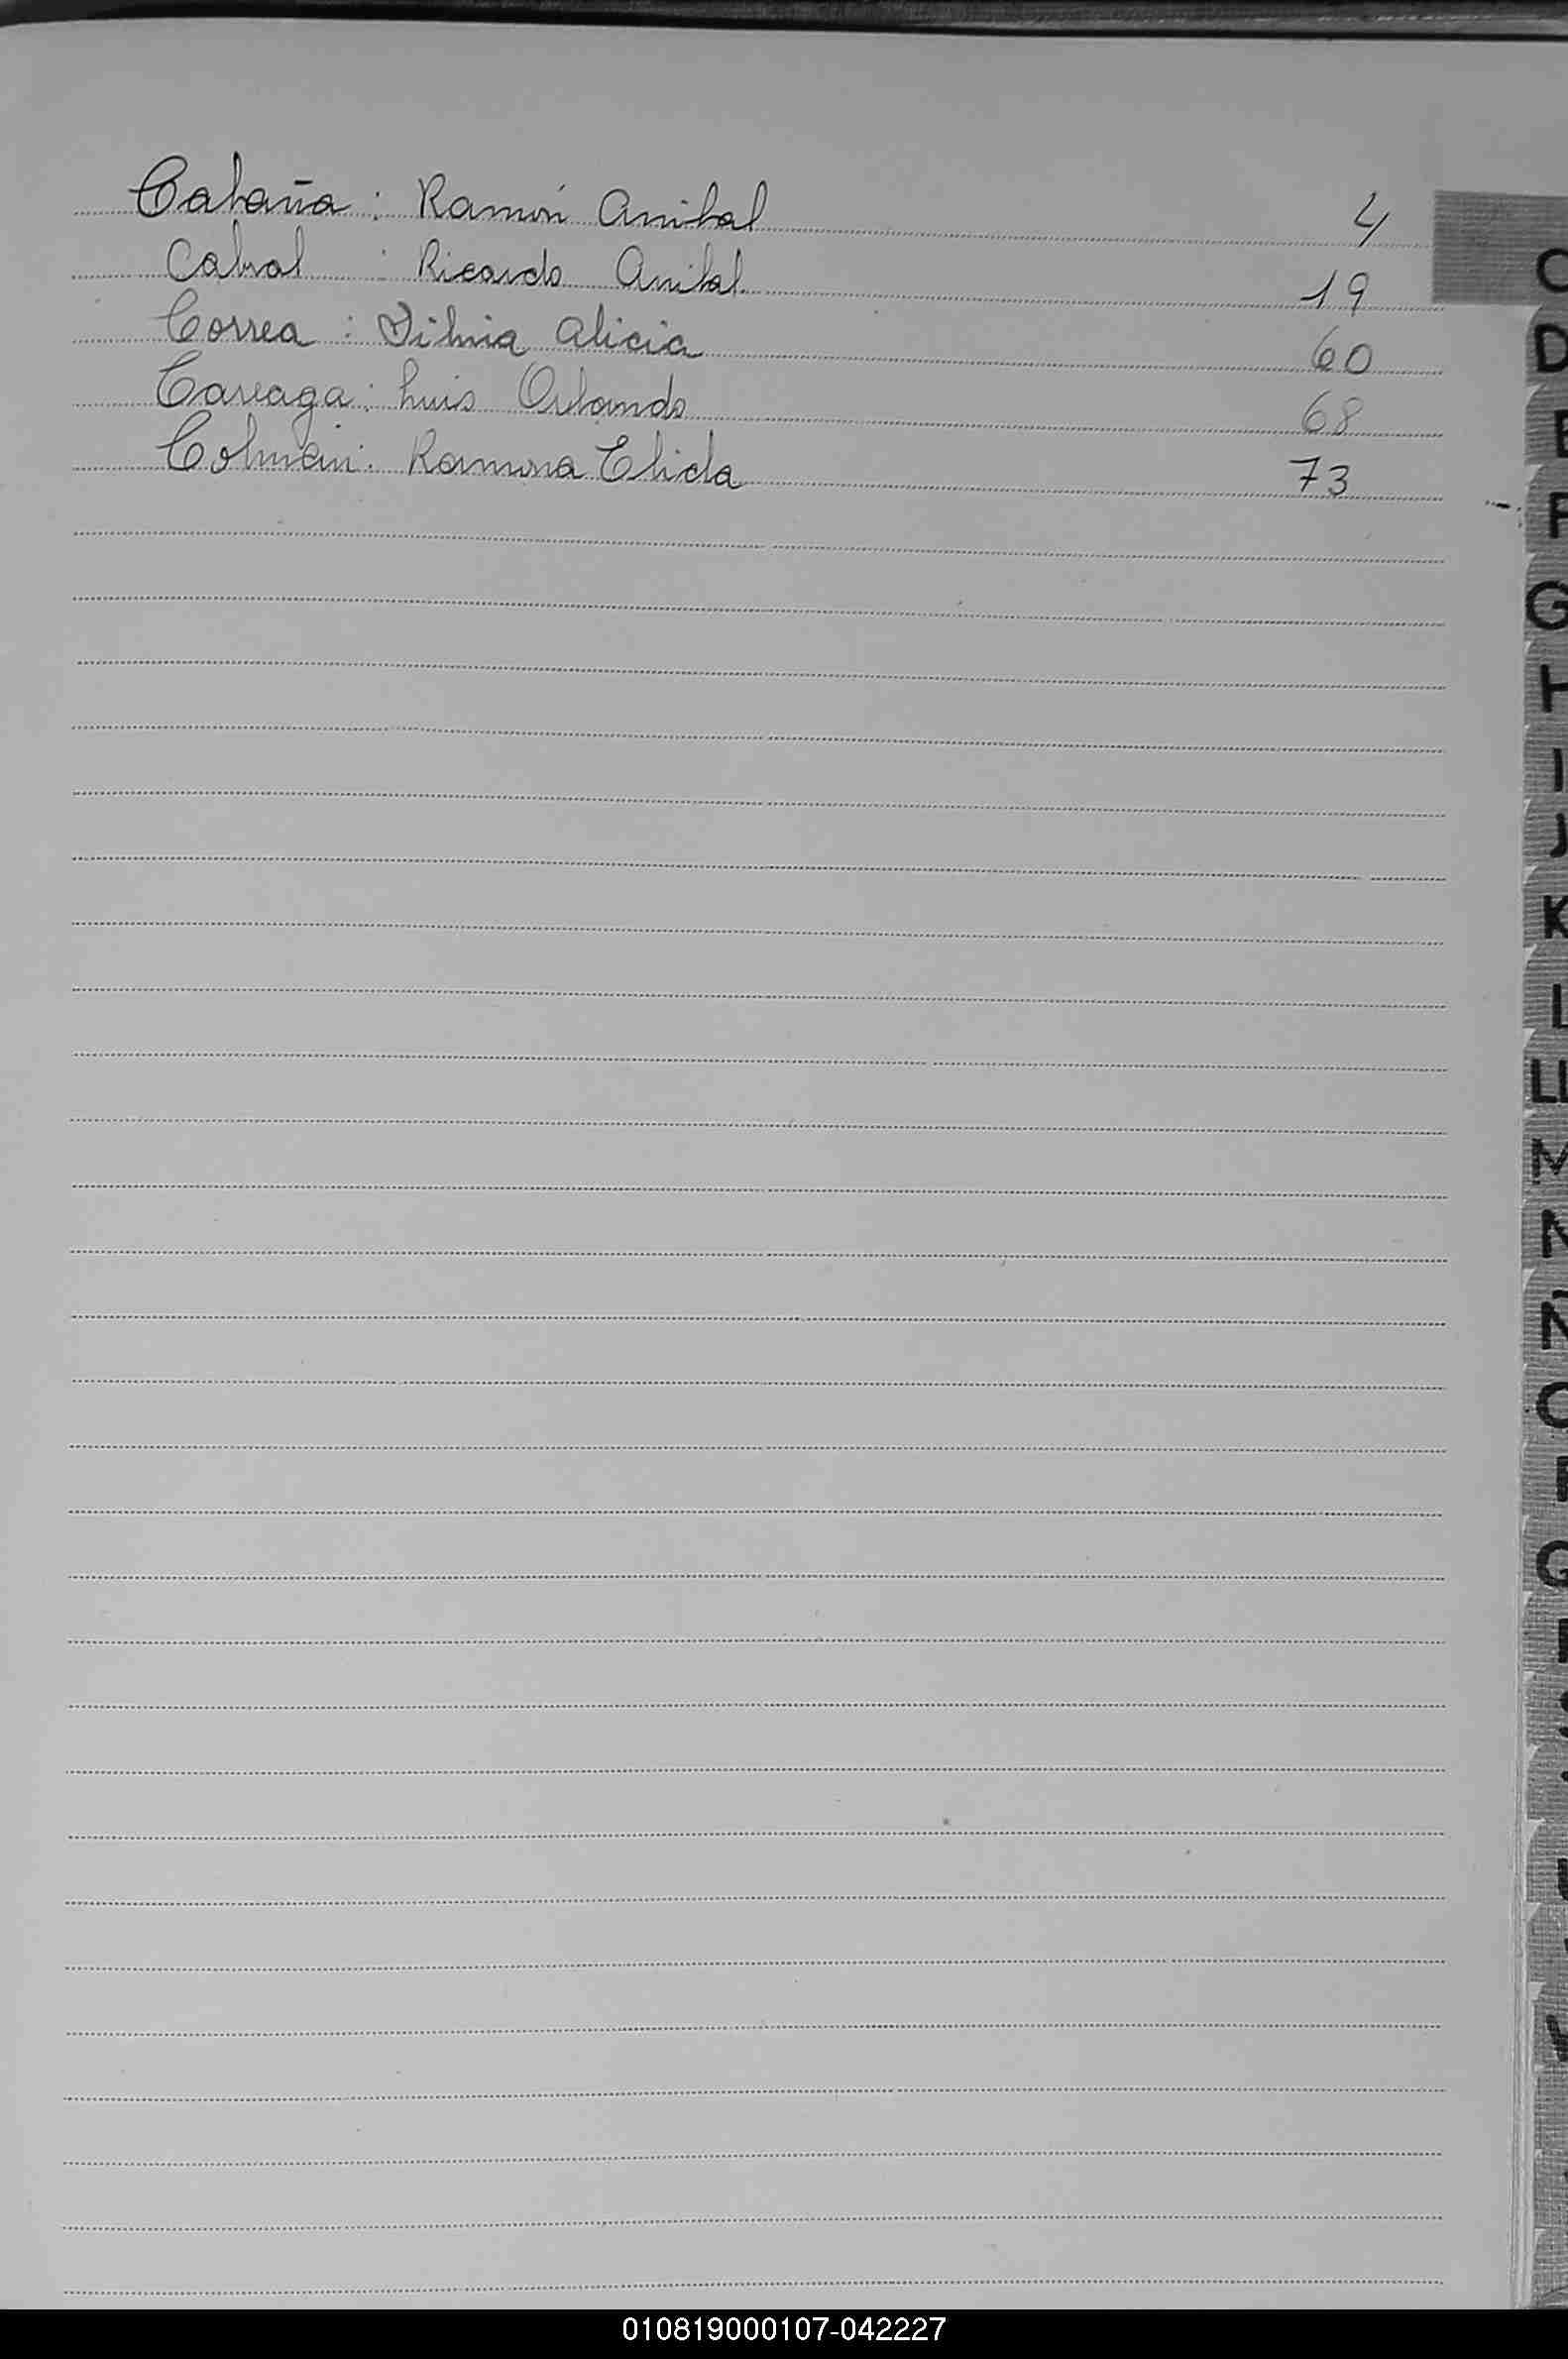 Cabaña: Ramón Anibal 4
Cabral : Ricardo Anibal 19
Correa : Silvia Alicia 60
Careaga: Luis Orlando 68
Colmán: Ramona Elida 73
C
D
E
F
G
H
I
J
K
L
LL
M
N
Ñ
O
P
Q
R
S
010819000107-042227